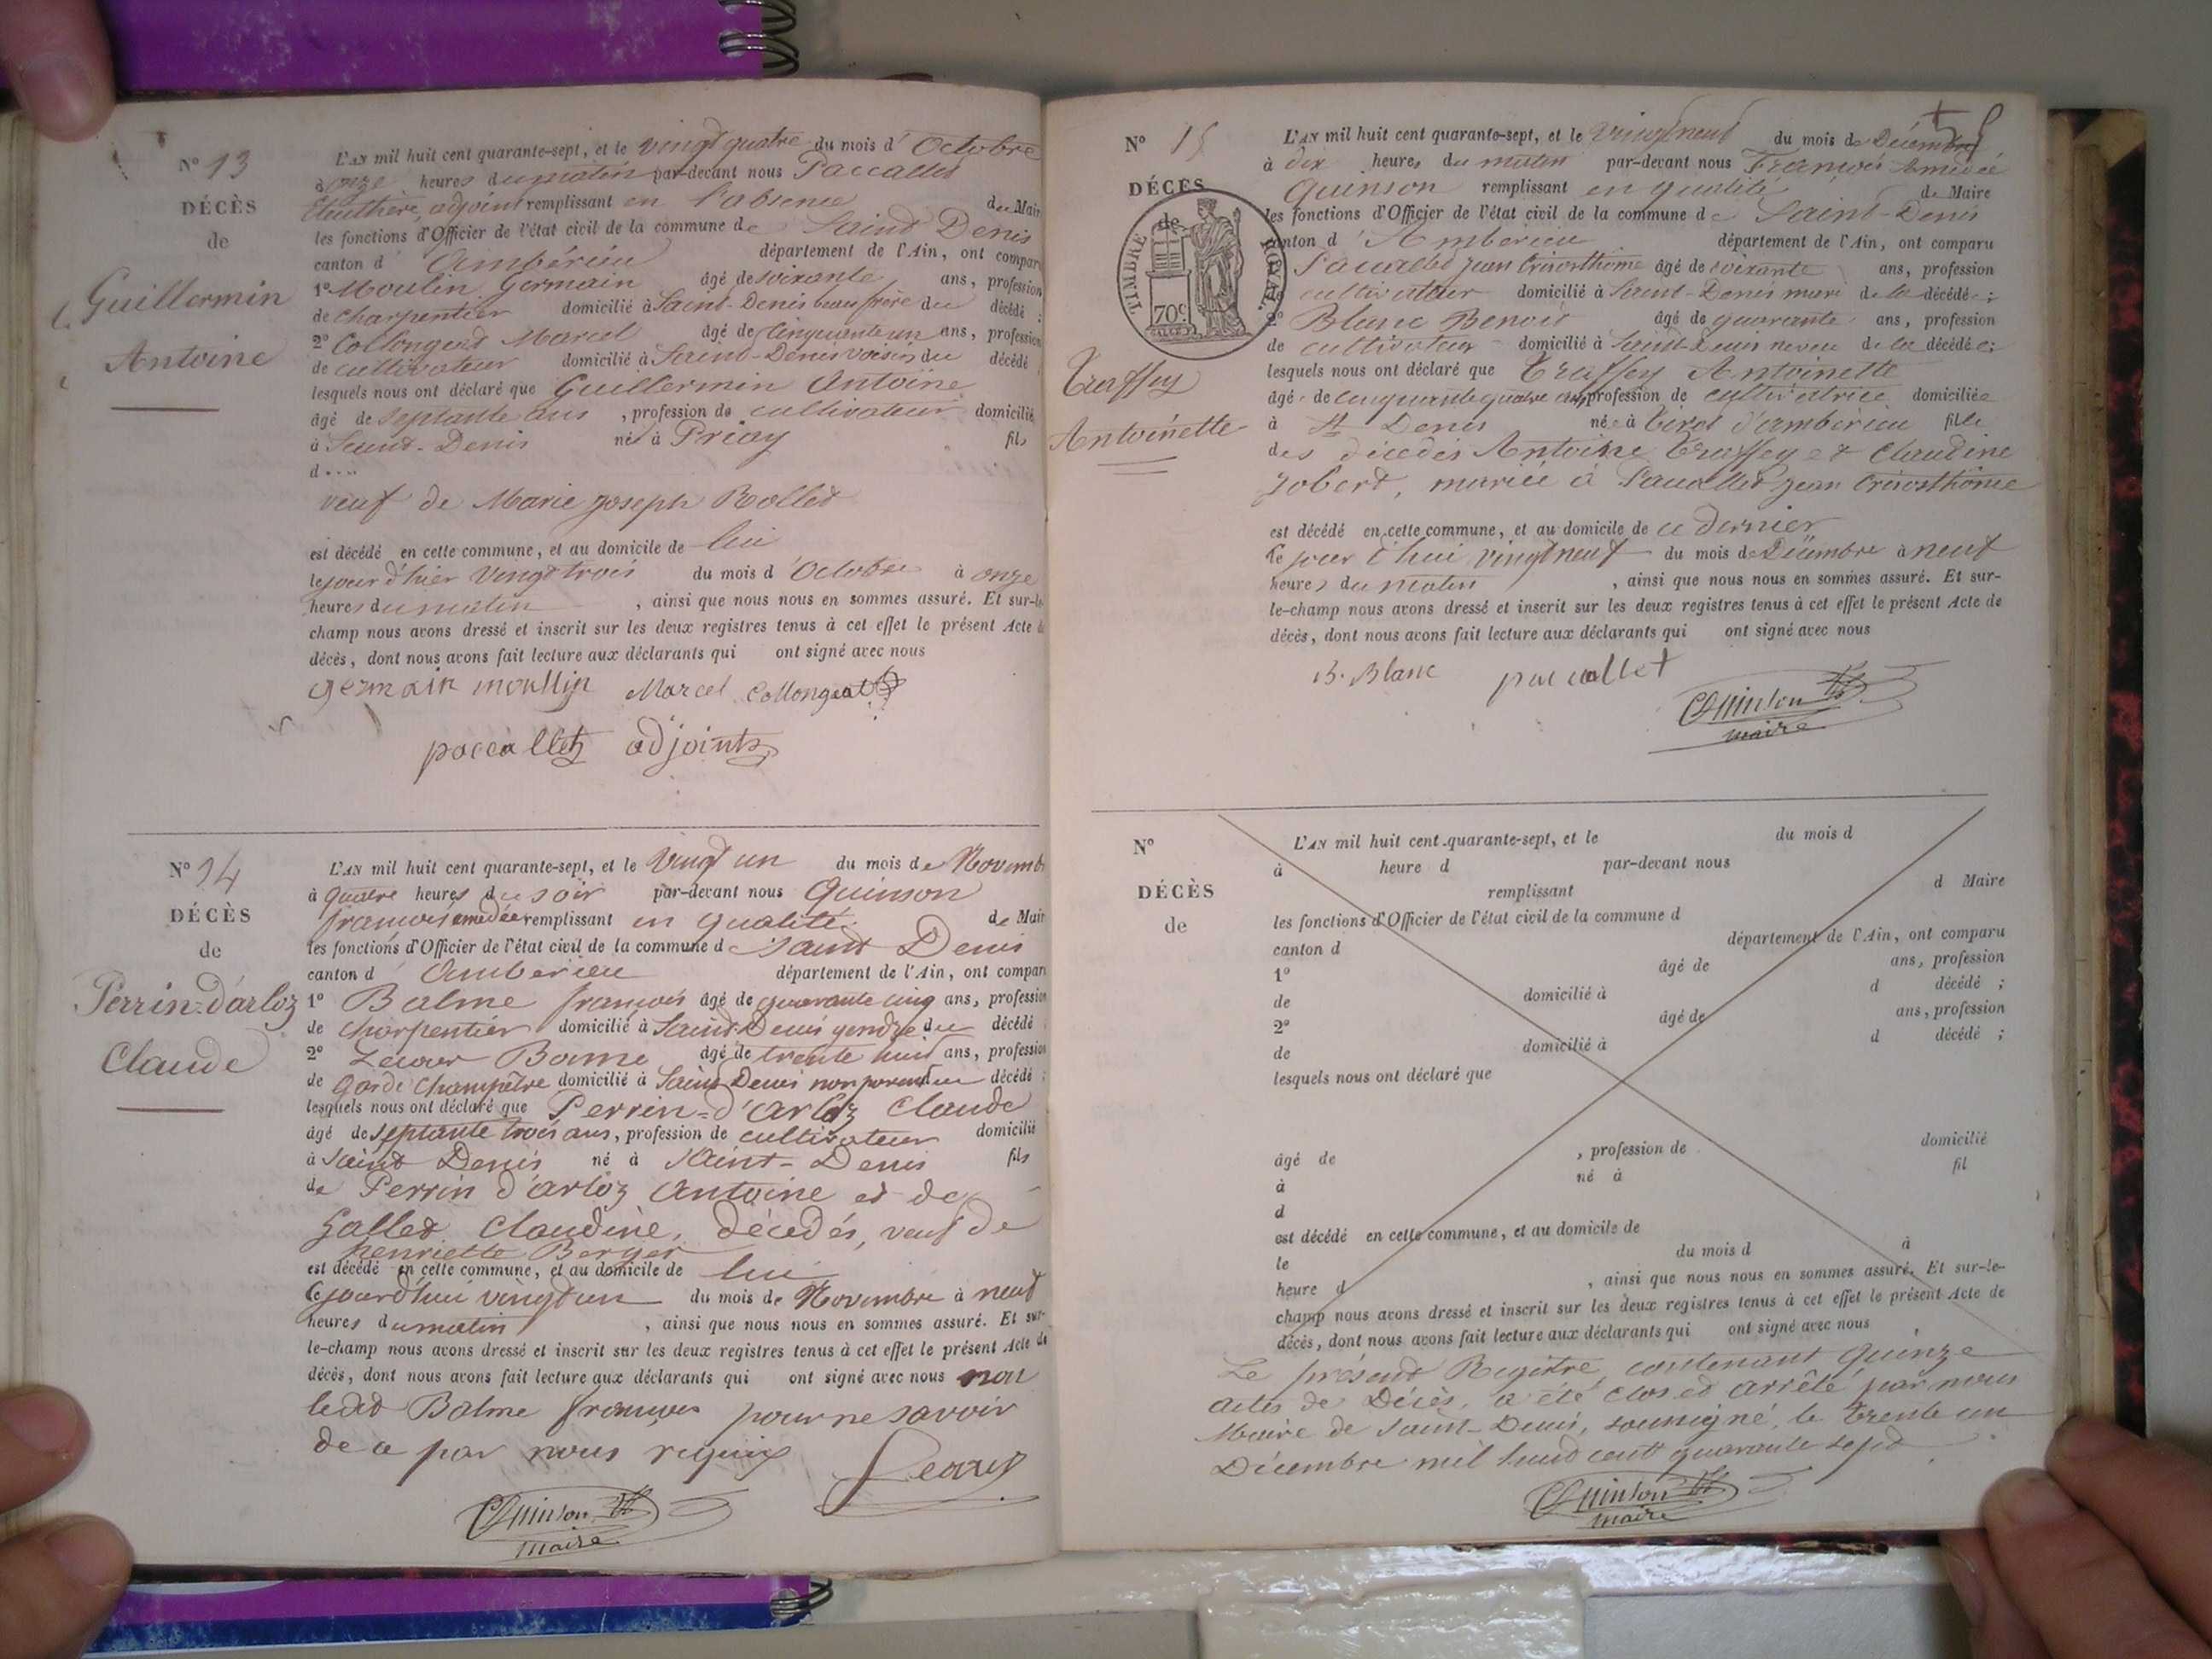 N° 13
DÉCÈS
de
Guillermin
Antoine
L'AN mil huit cent quarante-sept, et le vingt quatre du mois d'Octobre
à onze heures du matin par-devant nous Paccallet
Eleuthère, adjoint remplissant en l'absence du Mair
les fonctions d'Officier de l'état civil de la commune de Saint Denis
canton d'Ambérieu département de l'Ain, ont compar
1° Moulin Germain âgé de soixante ans, profession
de charpentier domicilié à Saint-Denis beau frère du décédé ;
2° Collongeat Marcel âgé de cinquante un ans, profession
de cultivateur domicilié à Saint-Denis voisin du décédé
lesquels nous ont déclaré que Guillermin Antoine
âgé de septante ans , profession de cultivateur domicilié
à Saint-Denis né à Priay fils
d....
veuf de Marie Joseph Rollet
est décédé en cette commune, et au domicile de lui
le jour d'hier vingt trois du mois d'Octobre à onze
heures du matin , ainsi que nous nous en sommes assuré. Et sur-le
champ nous avons dressé et inscrit sur les deux registres tenus à cet effet le présent Acte de
décès, dont nous avons fait lecture aux déclarants qui ont signé avec nous
germain moullin Marcel Collongeat
paccallet adjoint
N° 14
DÉCÈS
de
Perrin-d'arloz
Claude
L'AN mil huit cent quarante-sept, et le vingt un du mois de Novemb
à quatre heures du soir par-devant nous Quinson
françois amédée remplissant en qualité de Mair
les fonctions d'Officier de l'état civil de la commune de Saint Denis
canton d'Ambérieu département de l'Ain, ont compar
1° Balme françois âgé de quarante cinq ans, profession
de charpentier domicilié à Saint-Denis gendre du décédé
2° Bame âgé de trente huit ans, profession
de Garde Champêtre domicilié à Saint Denis non parent du décédé ;
lesquels nous ont déclaré que Perrin-d'Arloz Claude
âgé de septante trois ans, profession de cultivateur domicilié
à Saint Denis né à Saint-Denis fils
de Perrin d'arloz Antoine et de
Gallet Claudine, décédés, veuf de
henriette Berger
est décédé en cette commune, et au domicile de lui
Ce jourd'hui vingt un du mois de Novembre à neuf
heures du matin , ainsi que nous nous en sommes assuré. Et sur-
le-champ nous avons dressé et inscrit sur les deux registres tenus à cet effet le présent Acte de
décès, dont nous avons fait lecture aux déclarants qui ont signé avec nous non
ledit Balme françois pour ne savoir
de ce par nous requis
Quinson
maire
N° 15
DÉCÈS
de
TIMBRE ROYAL
70c
Truffey
Antoinette
L'AN mil huit cent quarante-sept, et le vingt neuf du mois de Décembre
à dix heures du matin par-devant nous François Amédée
Quinson remplissant en qualité de Maire
les fonctions d'Officier de l'état civil de la commune de Saint-Denis
canton d'Ambérieu département de l'Ain, ont comparu
Paccallet Jean Crisosthome âgé de soixante ans, profession
cultivateur domicilié à Saint-Denis mari de la décédée ;
2° Blanc Benoit âgé de quarante ans, profession
de cultivateur domicilié à Saint-Denis neveu de la décédée;
lesquels nous ont déclaré que Truffey Antoinette
âgée de cinquante quatre ans profession de cultivatrice domiciliée
à St Denis née à Tiret d'ambérieu fille
des décédés Antoine Truffey et Claudine
Jobert, mariée à Paccallet Jean Crisosthome
est décédé en cette commune, et au domicile de ce dernier
Ce jour d'hui vingt neuf du mois de Décembre à neuf
heures du matin , ainsi que nous nous en sommes assuré. Et sur-
le-champ nous avons dressé et inscrit sur les deux registres tenus à cet effet le présent Acte de
décès, dont nous avons fait lecture aux déclarants qui ont signé avec nous
B. Blanc paccallet
Quinson
maire
N°
DÉCÈS
de
L'AN mil huit cent quarante-sept, et le du mois d
à heure d par-devant nous
remplissant d Maire
les fonctions d'Officier de l'état civil de la commune d
canton d département de l'Ain, ont comparu
1° âgé de ans, profession
de domicilié à d décédé ;
2° âgé de ans, profession
de domicilié à d décédé ;
lesquels nous ont déclaré que
âgé de , profession de domicilié
à né à fil
d
est décédé en cette commune, et au domicile de
le du mois d à
heure d , ainsi que nous nous en sommes assuré. Et sur-le-
champ nous avons dressé et inscrit sur les deux registres tenus à cet effet le présent Acte de
décès, dont nous avons fait lecture aux déclarants qui ont signé avec nous
Le présent Registre, contenant Quinze
actes de Décès, a été clos et arrêté par nous
Maire de Saint-Denis, soussigné, le trente un
Décembre mil huit cent quarante sept
Quinson
maire